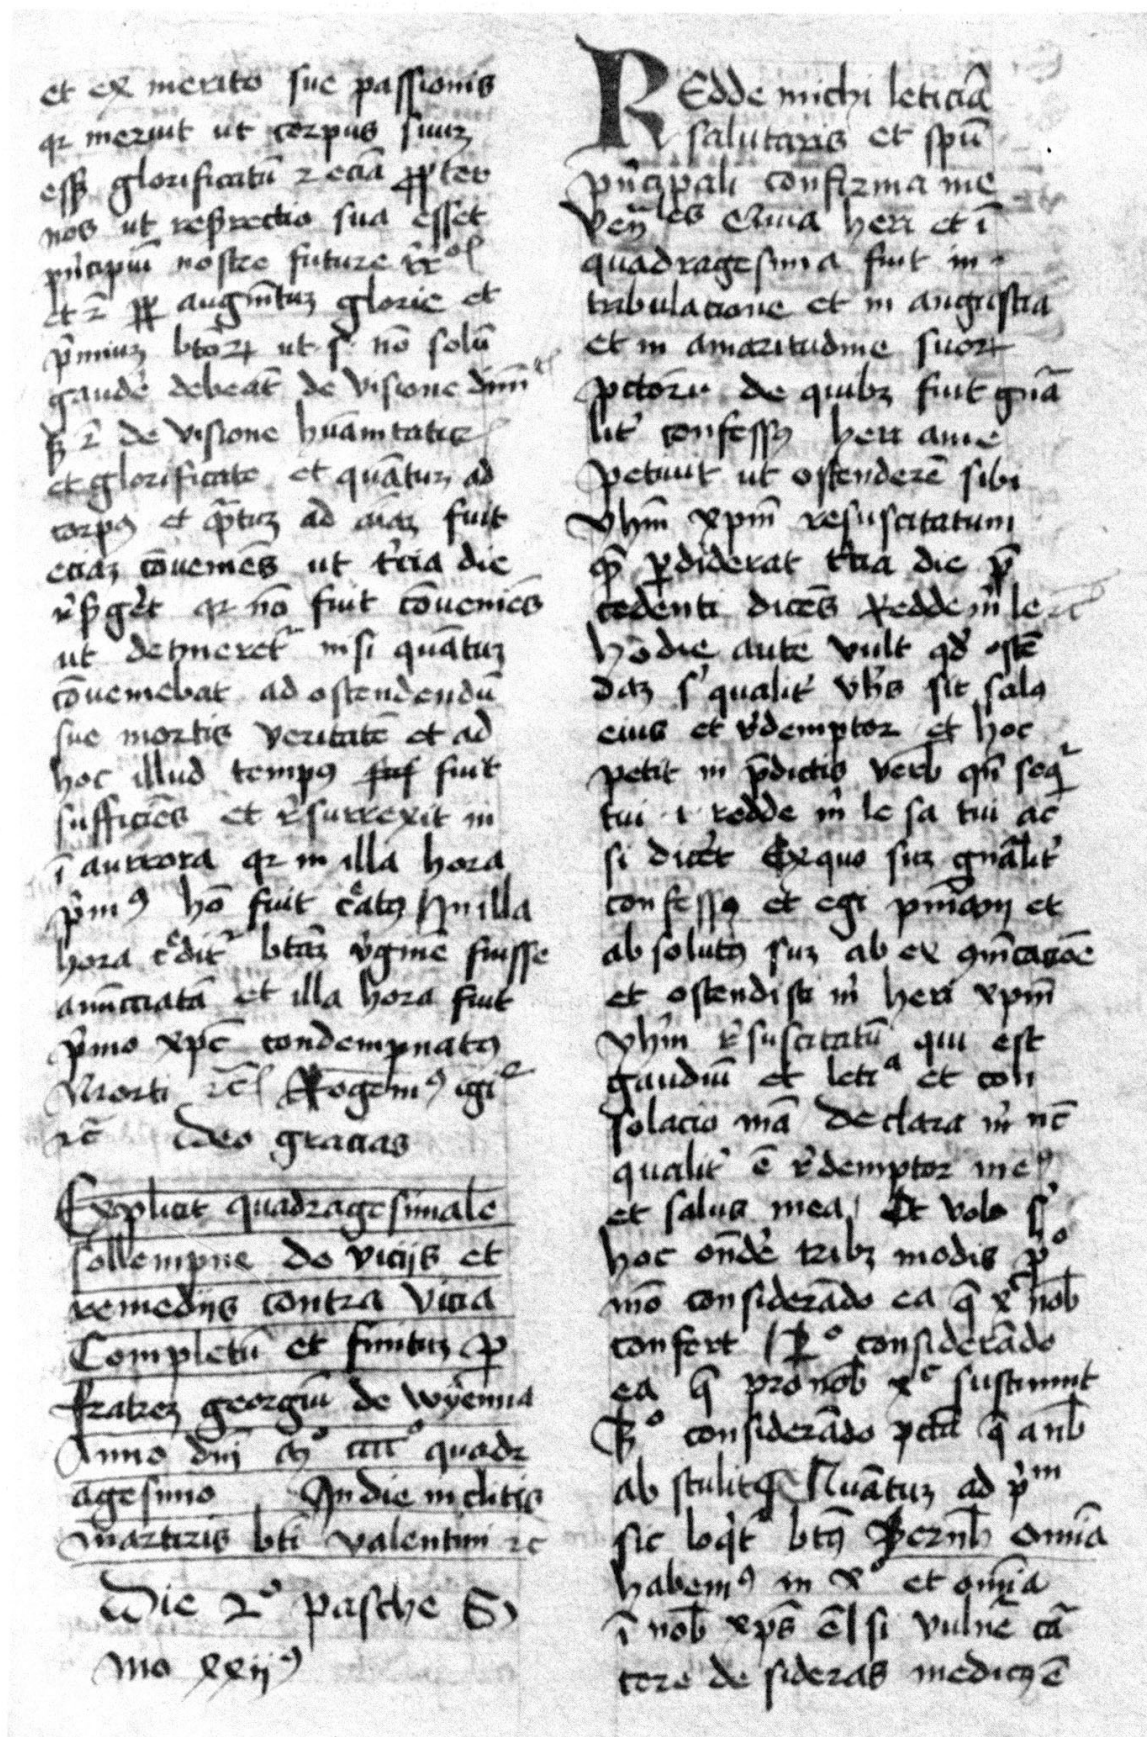 et ex merito sue passionis
qr meruit ut corpus suuz
esset glorificatū et eciā propter
nos ut resurectio sua esset
pncipiū nostre future
et augmētuz glorie et
pmiuz btorum ut sic nō solū
gaude debeāt de visione
de visione huāmtatis
et glorificate et quātuz ad
corpus et quātuz ad aiaz fuit
eciaz cōueniēs ut t'cia die
qr nō fuit cōueniēs
ut detineret' nisi quātuz
cōueniebat ad ostendendū
sue mortis veritatē et ad
hoc illud tempus fuit
sufficiēs et r'surrexit in
ī aurrora qr in illa hora
pmus hō fuit c'atus In illa
hora c'dit' btāz v'ginē fuisse
anūcciatā et illa hora fuit
pmo xpc condempnatus
Morti rc Rogemus igi
rc Deo gracias
Explicit quadragesimale
sollempne de vicijs et
remedijs contra vicia
Completū et finituz p
fratrez georgiū de wyenna
Anno dnj mo cccco quadr
agesimo In die incliti
martiris bti valentini rc
Die 2o pasche S
mo xxijus
REdde michi leticiā
salutaris et spū
pncipali confirma me
heri et ī
quadragesima fuit in
tribulacione et in angustia
et in amaritudine suorum
pctorū de quibz fuit gnā
lit' confessus heri
petiuit ut ostenderē sibi
yhm xpm resuscitatum
quē perdiderat t'cia die p
cedenti dicēs Redde m le rc
hodie autē vult qd ostē
daz s' qualit' yhs sit salus
eius et r'demptor et hoc
petit in pdictis verb qn seq'
tui i redde m le sa tui ac
si dic'et Exquo suz gnālit'
confessus et egi pniam et
absolutus suz ab ex gmcatoē
et ostendisti m heri xpm
yhm r'suscitatū qui est
gaudiū et letia et con
solacio mā declara m nc
qualit' ē r'demptor meus
et salus mea Et volo s'
hoc ondē tribz modis po
mō considerādo ea q xc nob
confert 2o considerādo
ea q pro nob xc sustinuit
3o considerādo pctā q a nb
abstulit Quātuz ad pm
sic loq't' btus Bernh omīa
habemus in xo et omīa
ī nob xps ē si vulnē cā
tore desideras medicus ē